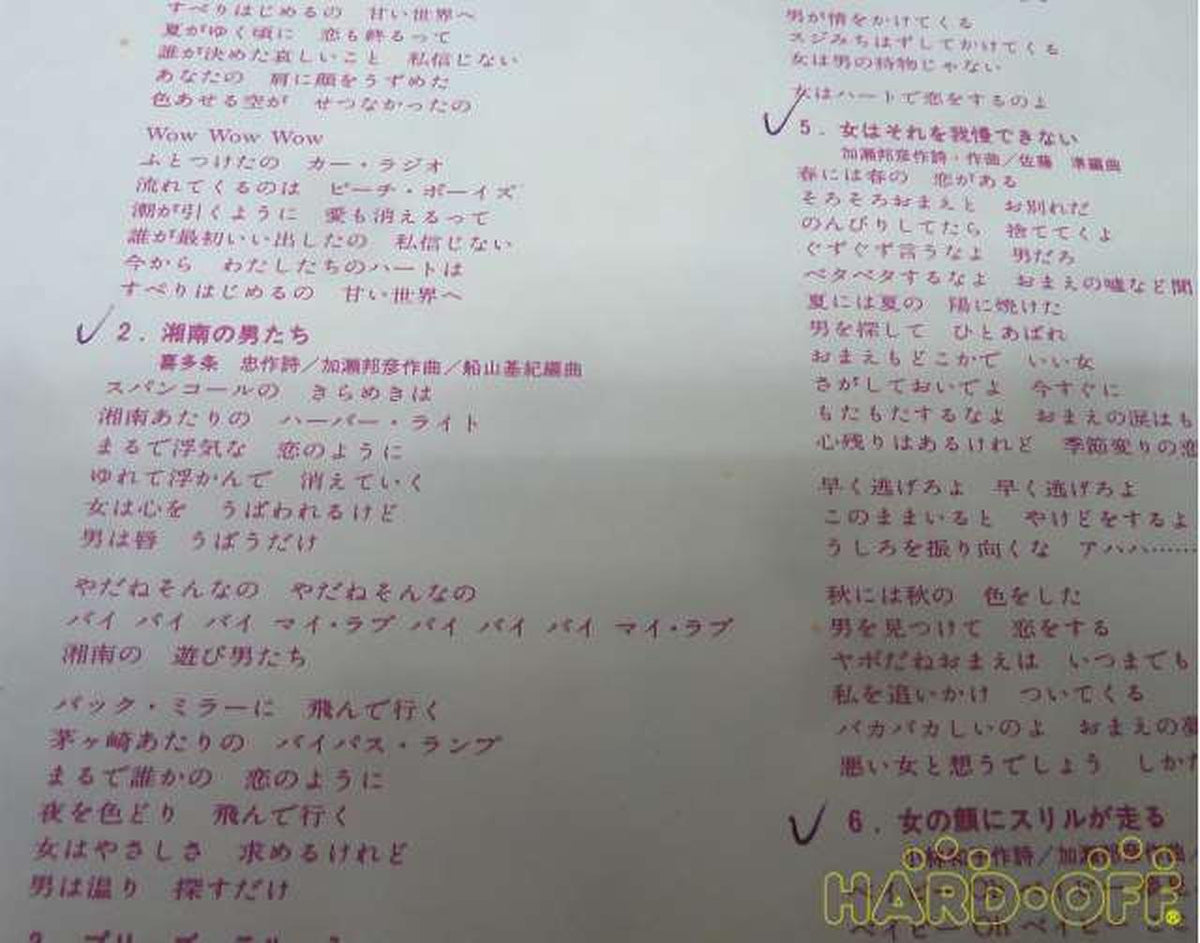 すべりはじめるの　甘い世界へ
夏がゆく頃に　恋も終るって
誰が決めた哀しいこと　私信じない
あなたの　肩に顔をうずめた
色あせる空が　せつなかったの
Wow Wow Wow
ふとつけたの　カー・ラジオ
流れてくるのは　ビーチ・ボーイズ
潮が引くように　愛も消えるって
誰が最初いい出したの　私信じない
今から　わたしたちのハートは
すべりはじめるの　甘い世界へ
2．湘南の男たち
喜多条　忠作詩／加瀬邦彦作曲／船山基紀編曲
スパンコールの　きらめきは
湘南あたりの　ハーバー・ライト
まるで浮気な　恋のように
ゆれて浮かんで　消えていく
女は心を　うばわれるけど
男は唇　うばうだけ
やだねそんなの　やだねそんなの
バイ バイ バイ マイ・ラブ バイ バイ バイ マイ・ラブ
湘南の　遊び男たち
バック・ミラーに　飛んで行く
茅ヶ崎あたりの　バイパス・ランプ
まるで誰かの　恋のように
夜を色どり　飛んで行く
女はやさしさ　求めるけれど
男は温り　探すだけ
男が情をかけてくる
スジみちはずしてかけてくる
女は男の持物じゃない
女はハートで恋をするのよ
5．女はそれを我慢できない
加瀬邦彦作詩・作曲／佐藤　準編曲
春には春の　恋がある
そろそろおまえと　お別れだ
のんびりしてたら　捨ててくよ
ぐずぐず言うなよ　男だろ
ベタベタするなよ　おまえの嘘など聞
夏には夏の　陽に焼けた
男を探して　ひとあばれ
おまえもどこかで　いい女
さがしておいでよ　今すぐに
もたもたするなよ　おまえの涙はも
心残りはあるけれど　季節変りの恋
早く逃げろよ　早く逃げろよ
このままいると　やけどをするよ
うしろを振り向くな　アハハ……
秋には秋の　色をした
男を見つけて　恋をする
ヤボだねおまえは　いつまでも
私を追いかけ　ついてくる
バカバカしいのよ　おまえの
悪い女と想うでしょう　しかた
6．女の顔にスリルが走る
作詩／加瀬邦彦作曲
HARD・OFF
ベイビー Oh ベイビー